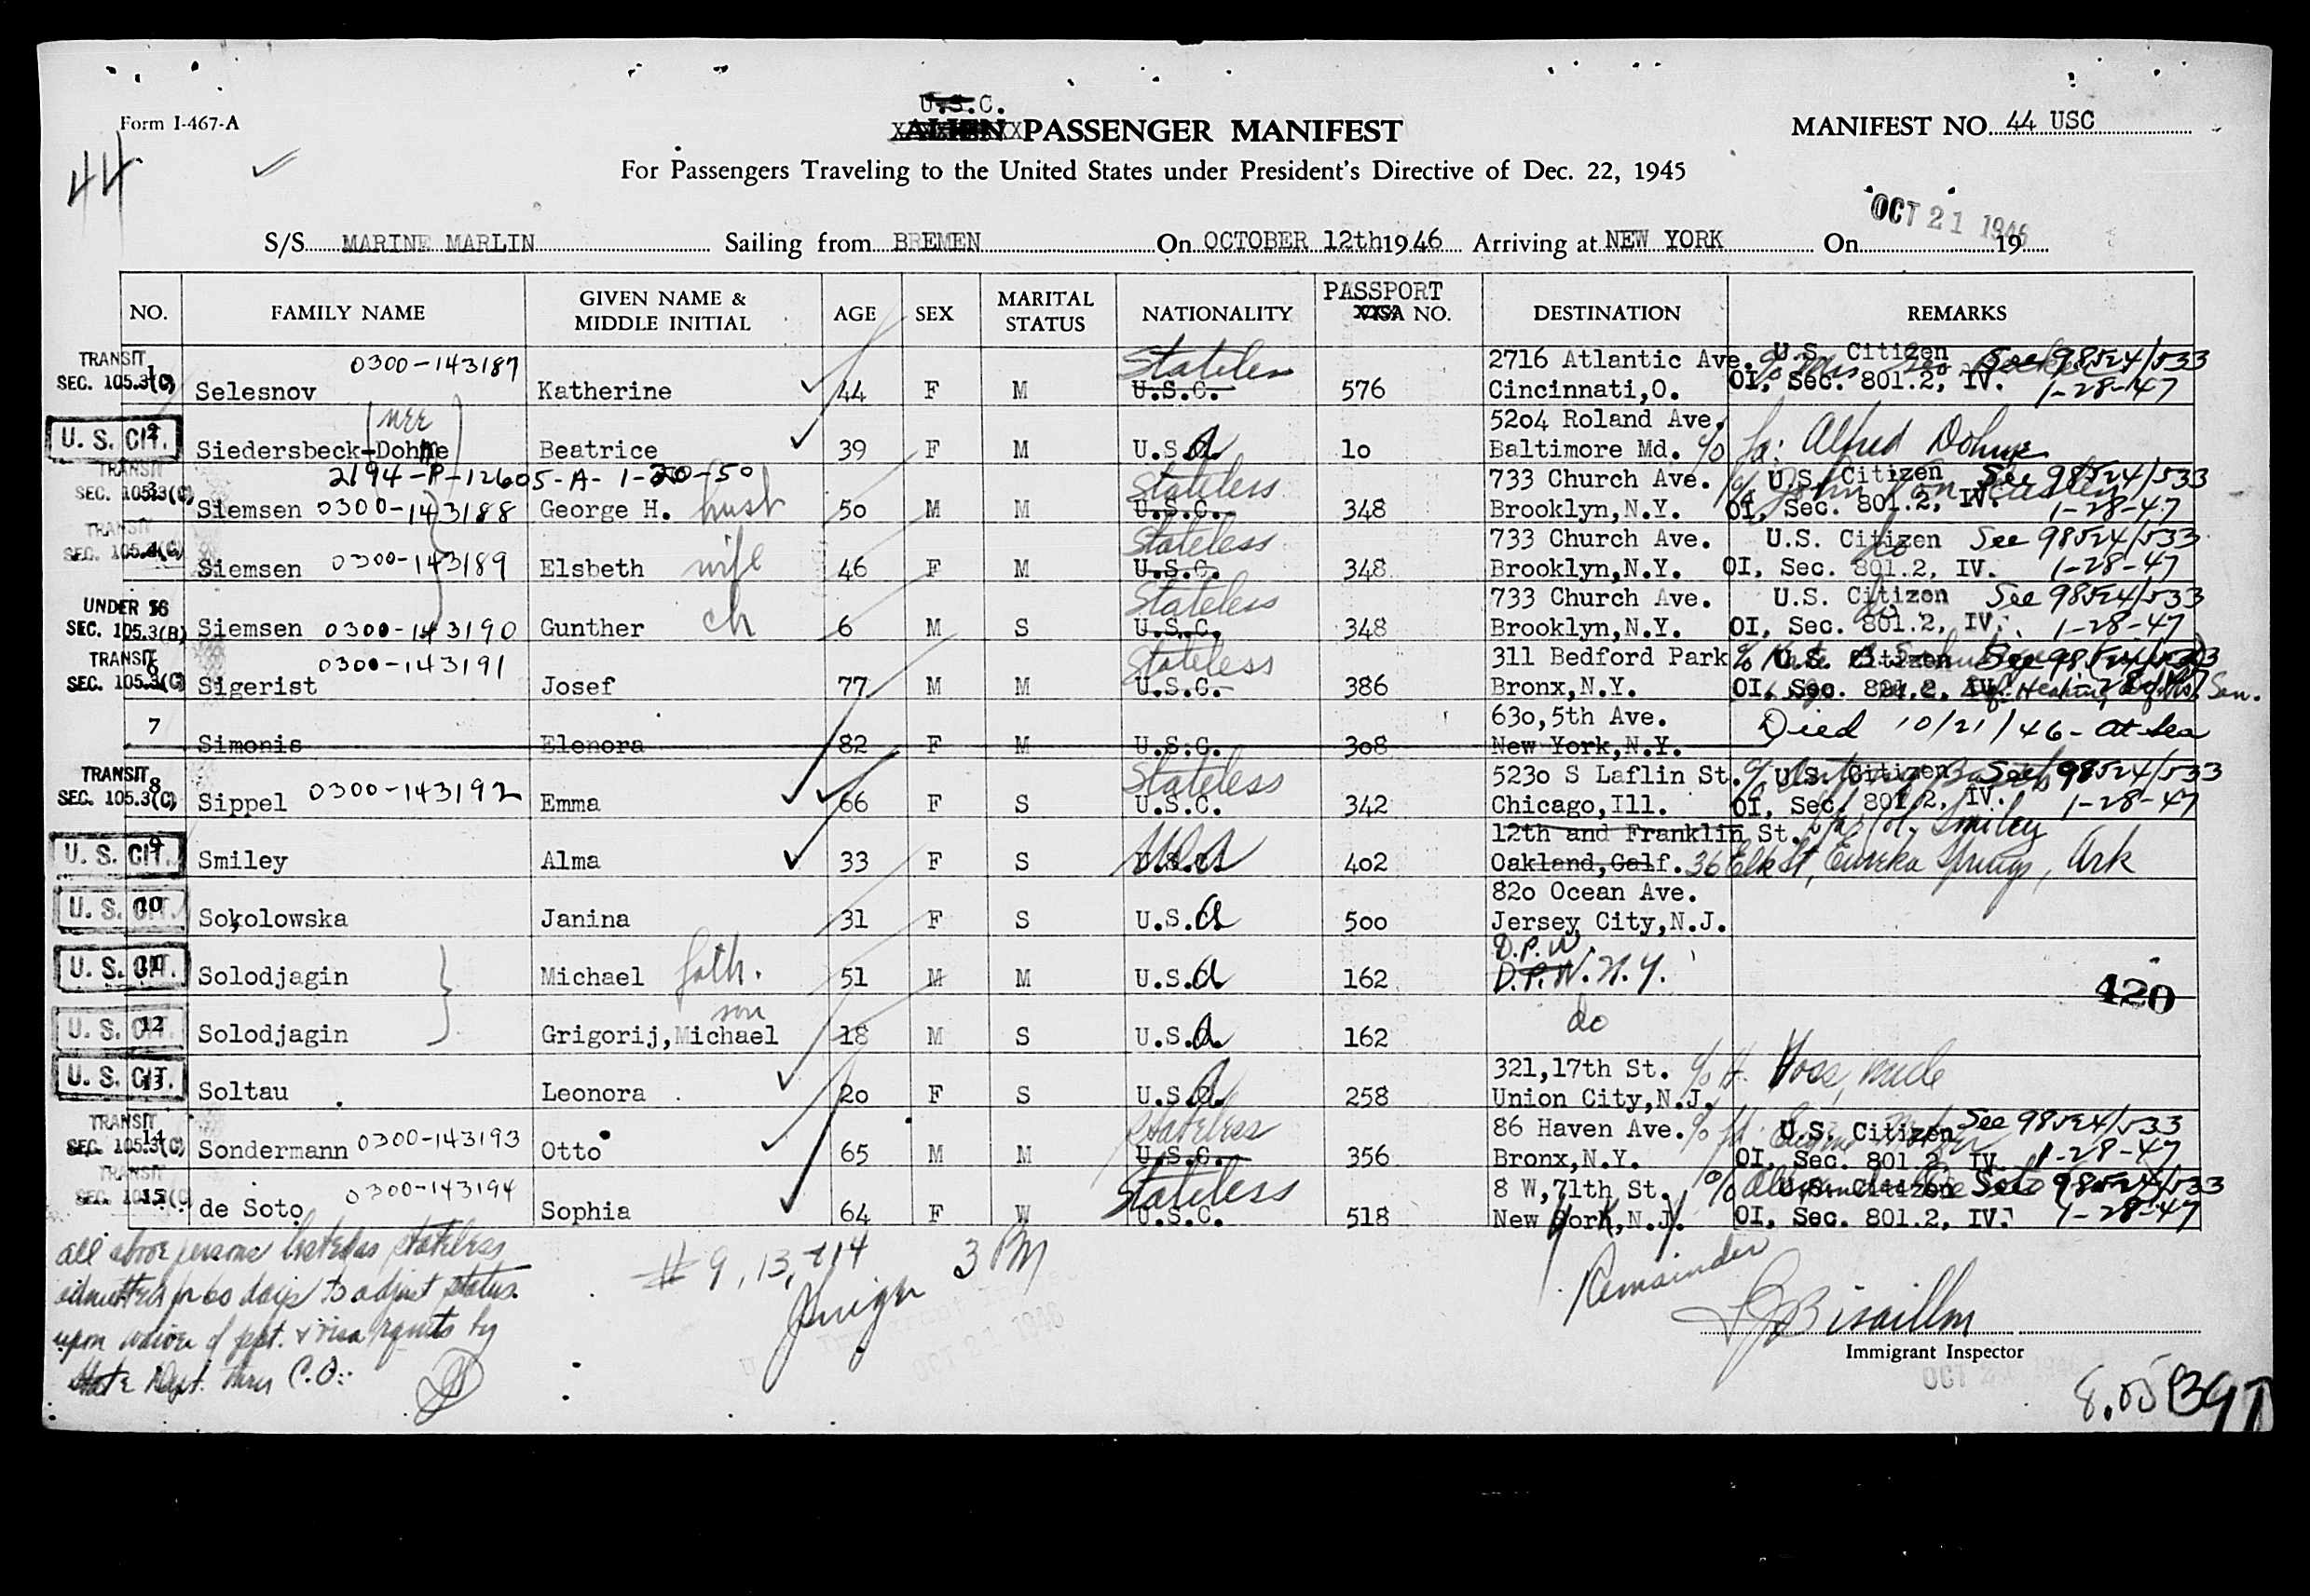 U.S.C.
Form I-467-A
ALIEN PASSENGER MANIFEST
MANIFEST NO. 44 USC
44
For Passengers Traveling to the United States under President's Directive of Dec. 22, 1945
OCT 21 1946
S/S MARINE MARLIN Sailing from BREMEN On OCTOBER 12th 1946 Arriving at NEW YORK On 19
NO. FAMILY NAME GIVEN NAME & MIDDLE INITIAL AGE SEX MARITAL STATUS NATIONALITY PASSPORT VISA NO. DESTINATION REMARKS
TRANSIT 0300-143187 Stateless 2716 Atlantic Ave. c/o Mrs U.S. Citizen See 98524/533
SEC. 105.3(C) 1 Selesnov Katherine 44 F M U.S.C. 576 Cincinnati,O. OI, Sec. 801.2, IV. 1-28-47
nee 5204 Roland Ave.
U. S. CIT. 2 Siedersbeck-Dohme Beatrice 39 F M U.S.A. 10 Baltimore Md. c/o fa: Alfred Dohme
TRANSIT 2194-P-12605-A-1-30-50 Stateless 733 Church Ave. c/o John U.S. Citizen See 98524/533
SEC. 105.3(C) 3 Siemsen 0300-143188 George H. husb 50 M M U.S.C. 348 Brooklyn,N.Y. OI, Sec. 801.2, IV. 1-28-47
TRANSIT Stateless 733 Church Ave. U.S. Citizen See 98524/533
SEC. 105.3(C) 4 Siemsen 0300-143189 Elsbeth wife 46 F M U.S.C. 348 Brooklyn,N.Y. do OI, Sec. 801.2, IV. 1-28-47
UNDER 16 Stateless 733 Church Ave. U.S. Citizen See 98524/533
SEC. 105.3(B) 5 Siemsen 0300-143190 Gunther ch 6 M S U.S.C. 348 Brooklyn,N.Y. do OI, Sec. 801.2, IV. 1-28-47
TRANSIT 0300-143191 Stateless 311 Bedford Park c/o U.S. Citizen See 98524/533
SEC. 105.3(C) 6 Sigerist Josef 77 M M U.S.C. 386 Bronx,N.Y. OI, Sec. 801.2, IV. 1-28-47
7 630,5th Ave. Died 10/21/46 - at Sea
Simonis Elenora 82 F M U.S.C. 308 New York,N.Y.
TRANSIT Stateless 5230 S Laflin St. c/o U.S. Citizen See 98524/533
SEC. 105.3(C) 8 Sippel 0300-143192 Emma 66 F S U.S.C. 342 Chicago,Ill. OI, Sec. 801.2, IV. 1-28-47
12th and Franklin St. Smiley
U. S. CIT. 9 Smiley Alma 33 F S U.S.C. USA 402 Oakland,Calf. 36 Elk St, Eureka Springs, Ark
820 Ocean Ave.
U. S. CIT. 10 Sokolowska Janina 31 F S U.S.A 500 Jersey City,N.J.
D.P.W.
U. S. CIT. 11 Solodjagin Michael fath. 51 M M U.S.A 162 D.P.W. N.Y.
420
son
U. S. CIT. 12 Solodjagin Grigorij,Michael 18 M S U.S.A 162 do
321,17th St. c/o H. Voss, uncle
U. S. CIT. 13 Soltau Leonora 20 F S U.S.A 258 Union City,N.J.
TRANSIT Stateless 86 Haven Ave. c/o U.S. Citizen See 98524/533
SEC. 105.3(C) 14 Sondermann 0300-143193 Otto 65 M M U.S.C. 356 Bronx,N.Y. OI, Sec. 801.2, IV. 1-28-47
TRANSIT 0300-143194 Stateless 8 W,71th St. c/o U.S. Citizen See 98524/533
SEC. 105.3(C) 15 de Soto Sophia 64 F W U.S.C. 518 New York,N.Y. OI, Sec. 801.2, IV. 1-28-47
all above persons listed as stateless
admitted for 60 days to adjust status
upon waiver of ppt. & visa rqmts by
State Dept. thru C.O.
# 9, 13, & 14 3 PM
Remainder
Immigrant Inspector
OCT 21 1946
8.05